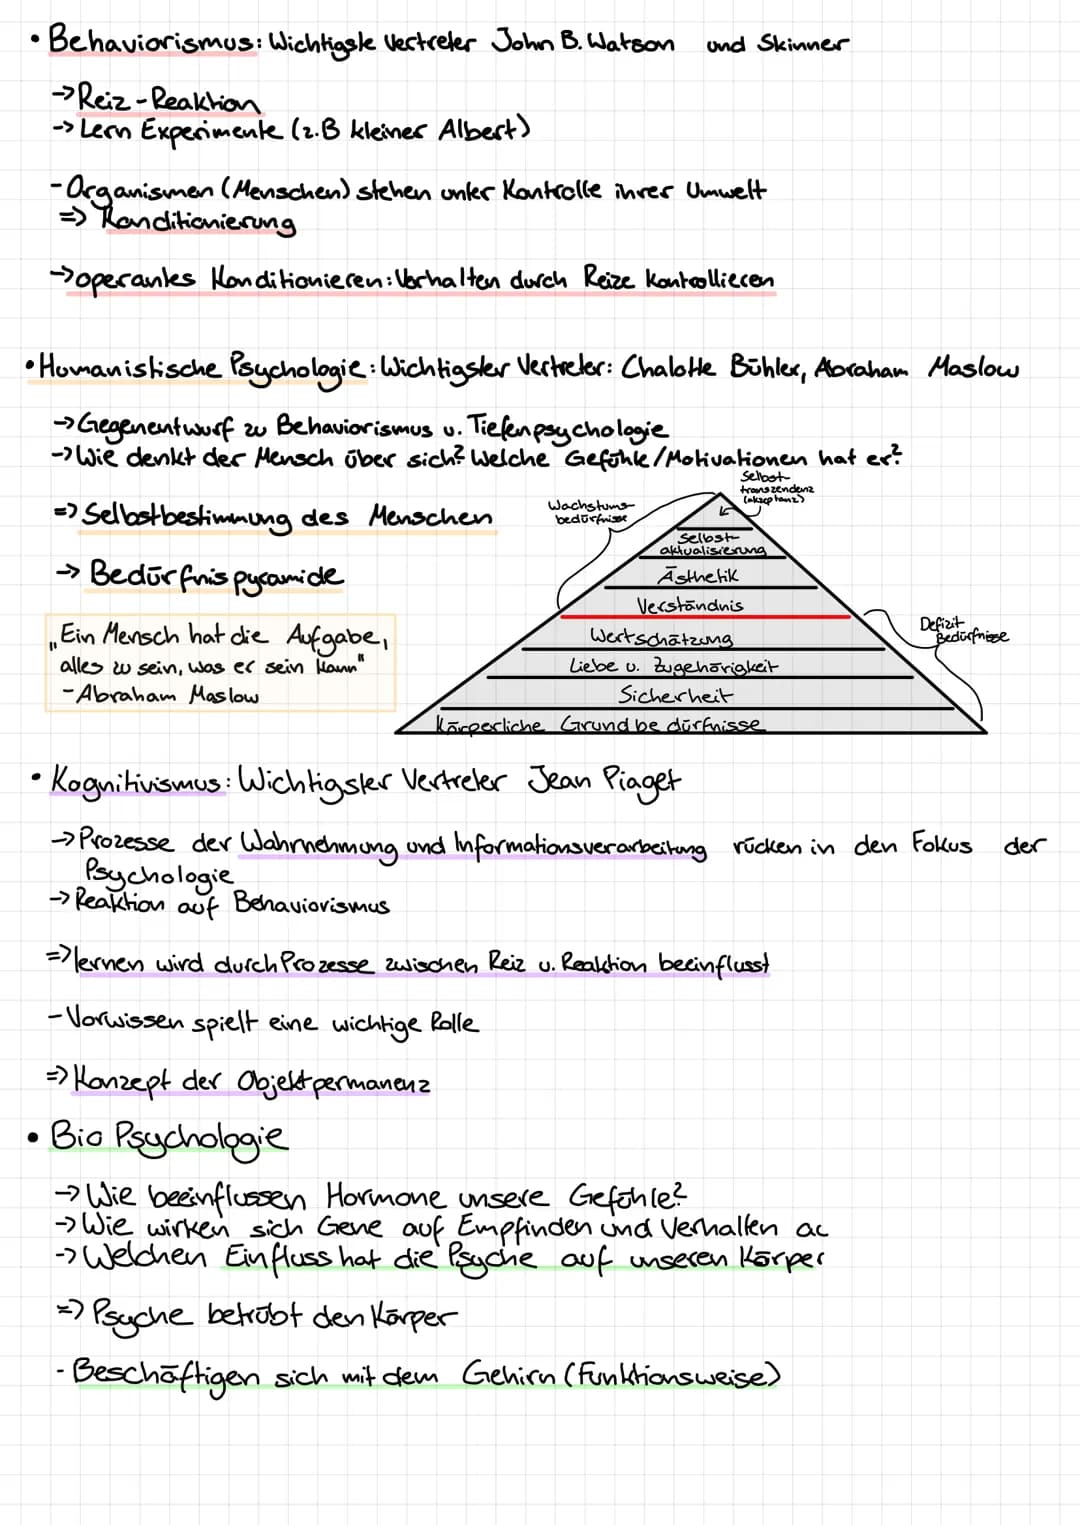 • Behaviorismus: Wichtigste Vertreter John B. Watson und Skinner
→ Reiz - Reaktion
→ Lern Experimente (z.B kleiner Albert)
- Organismen (Menschen) stehen unter Kontrolle ihrer Umwelt
⇒ Konditionierung
→ operantes Konditionieren: Verhalten durch Reize kontrollieren
• Humanistische Psychologie: Wichtigster Vertreter: Chalotte Bühler, Abraham Maslow
→ Gegenentwurf zu Behaviorismus u. Tiefenpsychologie
→ Wie denkt der Mensch über sich? Welche Gefühle/Motivationen hat er?
⇒ Selbstbestimmung des Menschen
→ Bedürfnispyramide
„Ein Mensch hat die Aufgabe,
alles zu sein, was er sein kann"
- Abraham Maslow
Wachstums-
bedürfnisse
Selbst-
transzendenz
(akzeptanz)
Selbst-
aktualisierung
Ästhetik
Verständnis
Wertschätzung
Liebe u. Zugehörigkeit
Sicherheit
Körperliche Grundbedürfnisse
Defizit
Bedürfnisse
• Kognitivismus: Wichtigster Vertreter Jean Piaget
→ Prozesse der Wahrnehmung und Informationsverarbeitung rücken in den Fokus der
Psychologie
→ Reaktion auf Behaviorismus
⇒ lernen wird durch Prozesse zwischen Reiz u. Reaktion beeinflusst
- Vorwissen spielt eine wichtige Rolle
⇒ Konzept der Objektpermanenz
• Bio Psychologie
→ Wie beeinflussen Hormone unsere Gefühle?
→ Wie wirken sich Gene auf Empfinden und Verhalten ac
→ Welchen Einfluss hat die Psyche auf unseren Körper
⇒ Psyche betrübt den Körper
- Beschäftigen sich mit dem Gehirn (Funktionsweise)